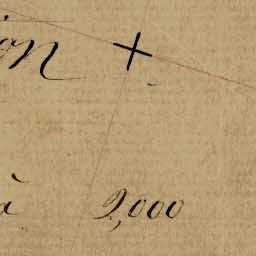 on +
à 2,000